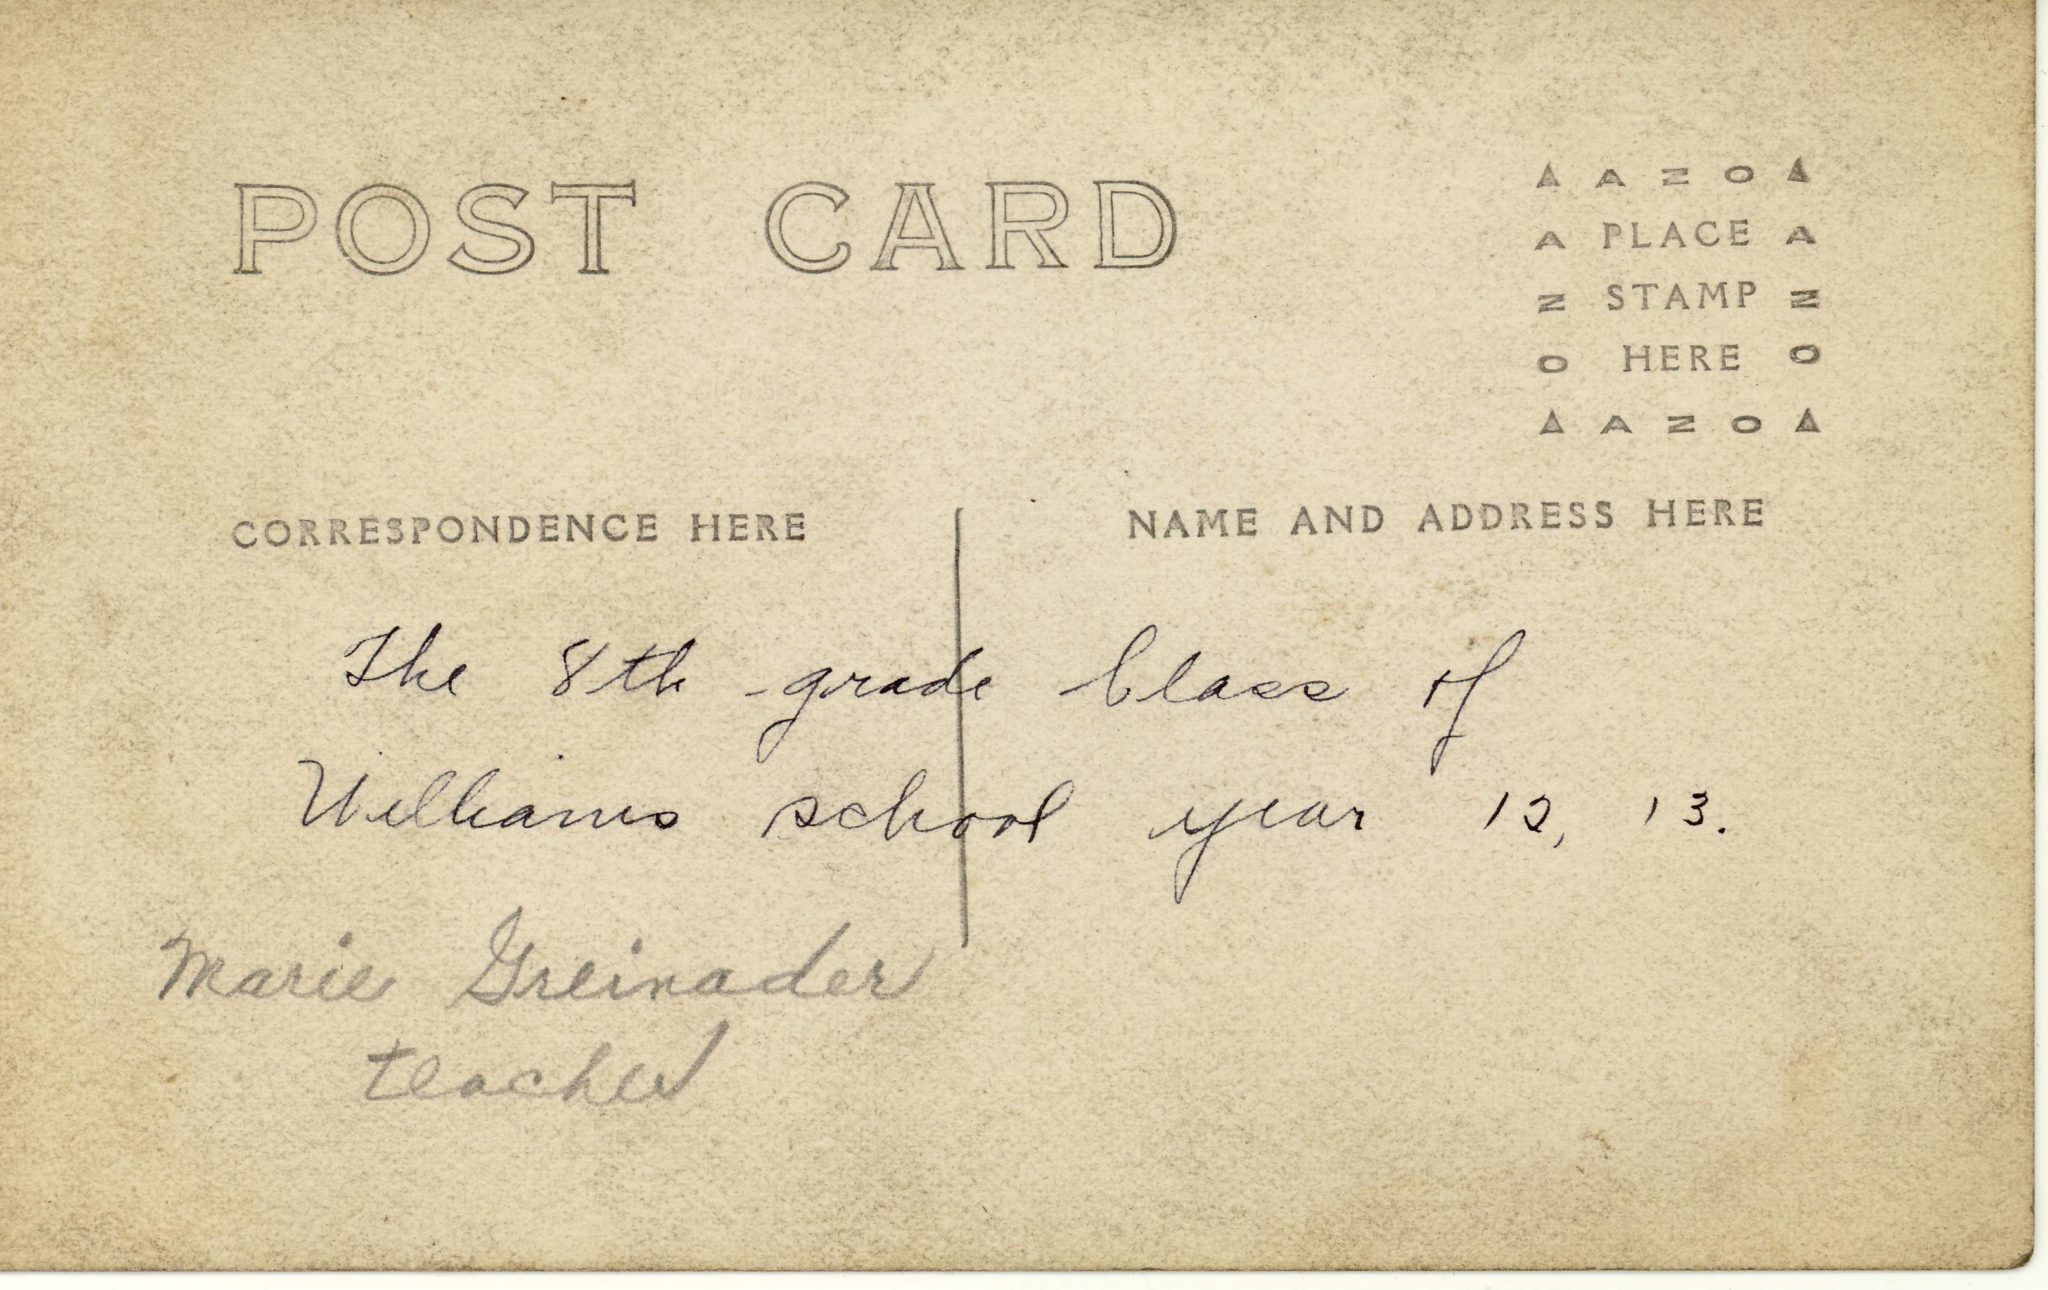 POST CARD
AZO
A PLACE A
Z STAMP Z
O HERE O
AZO
CORRESPONDENCE HERE
NAME AND ADDRESS HERE
The 8th grade Class of
Williams school year 12, 13.
Marie Greinader
teacher